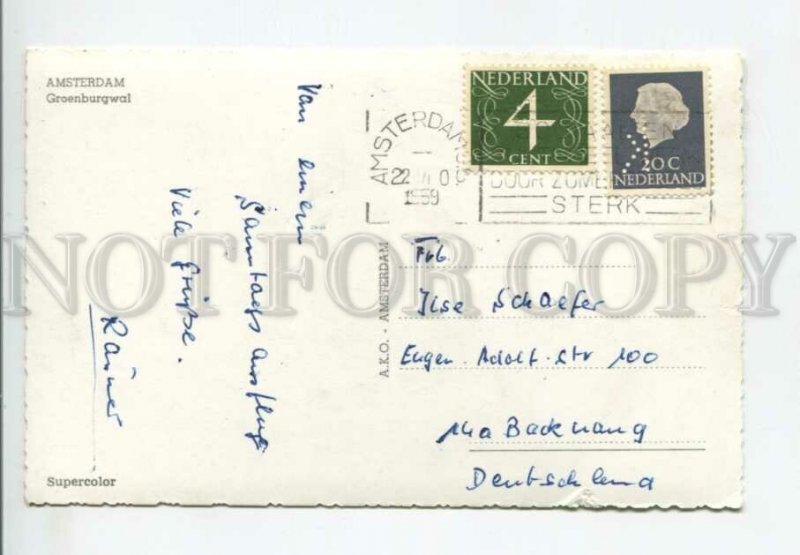 AMSTERDAM
Groenburgwal
Von einem
Samstagsausflug
Viele Grüße.
Rainer
Supercolor
A.K.O. - AMSTERDAM
NEDERLAND
4
CENT
20 C
NEDERLAND
AMSTERDAM
22
1959
DOOR ZOME
STERK
Frl.
Ilse Schaefer
Eugen-Adolf-Str 100
14a Backnang
Deutschland
NOT FOR COPY